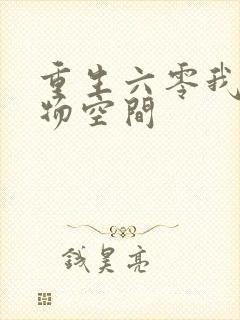 重生六零我
物空間
錢昊亮